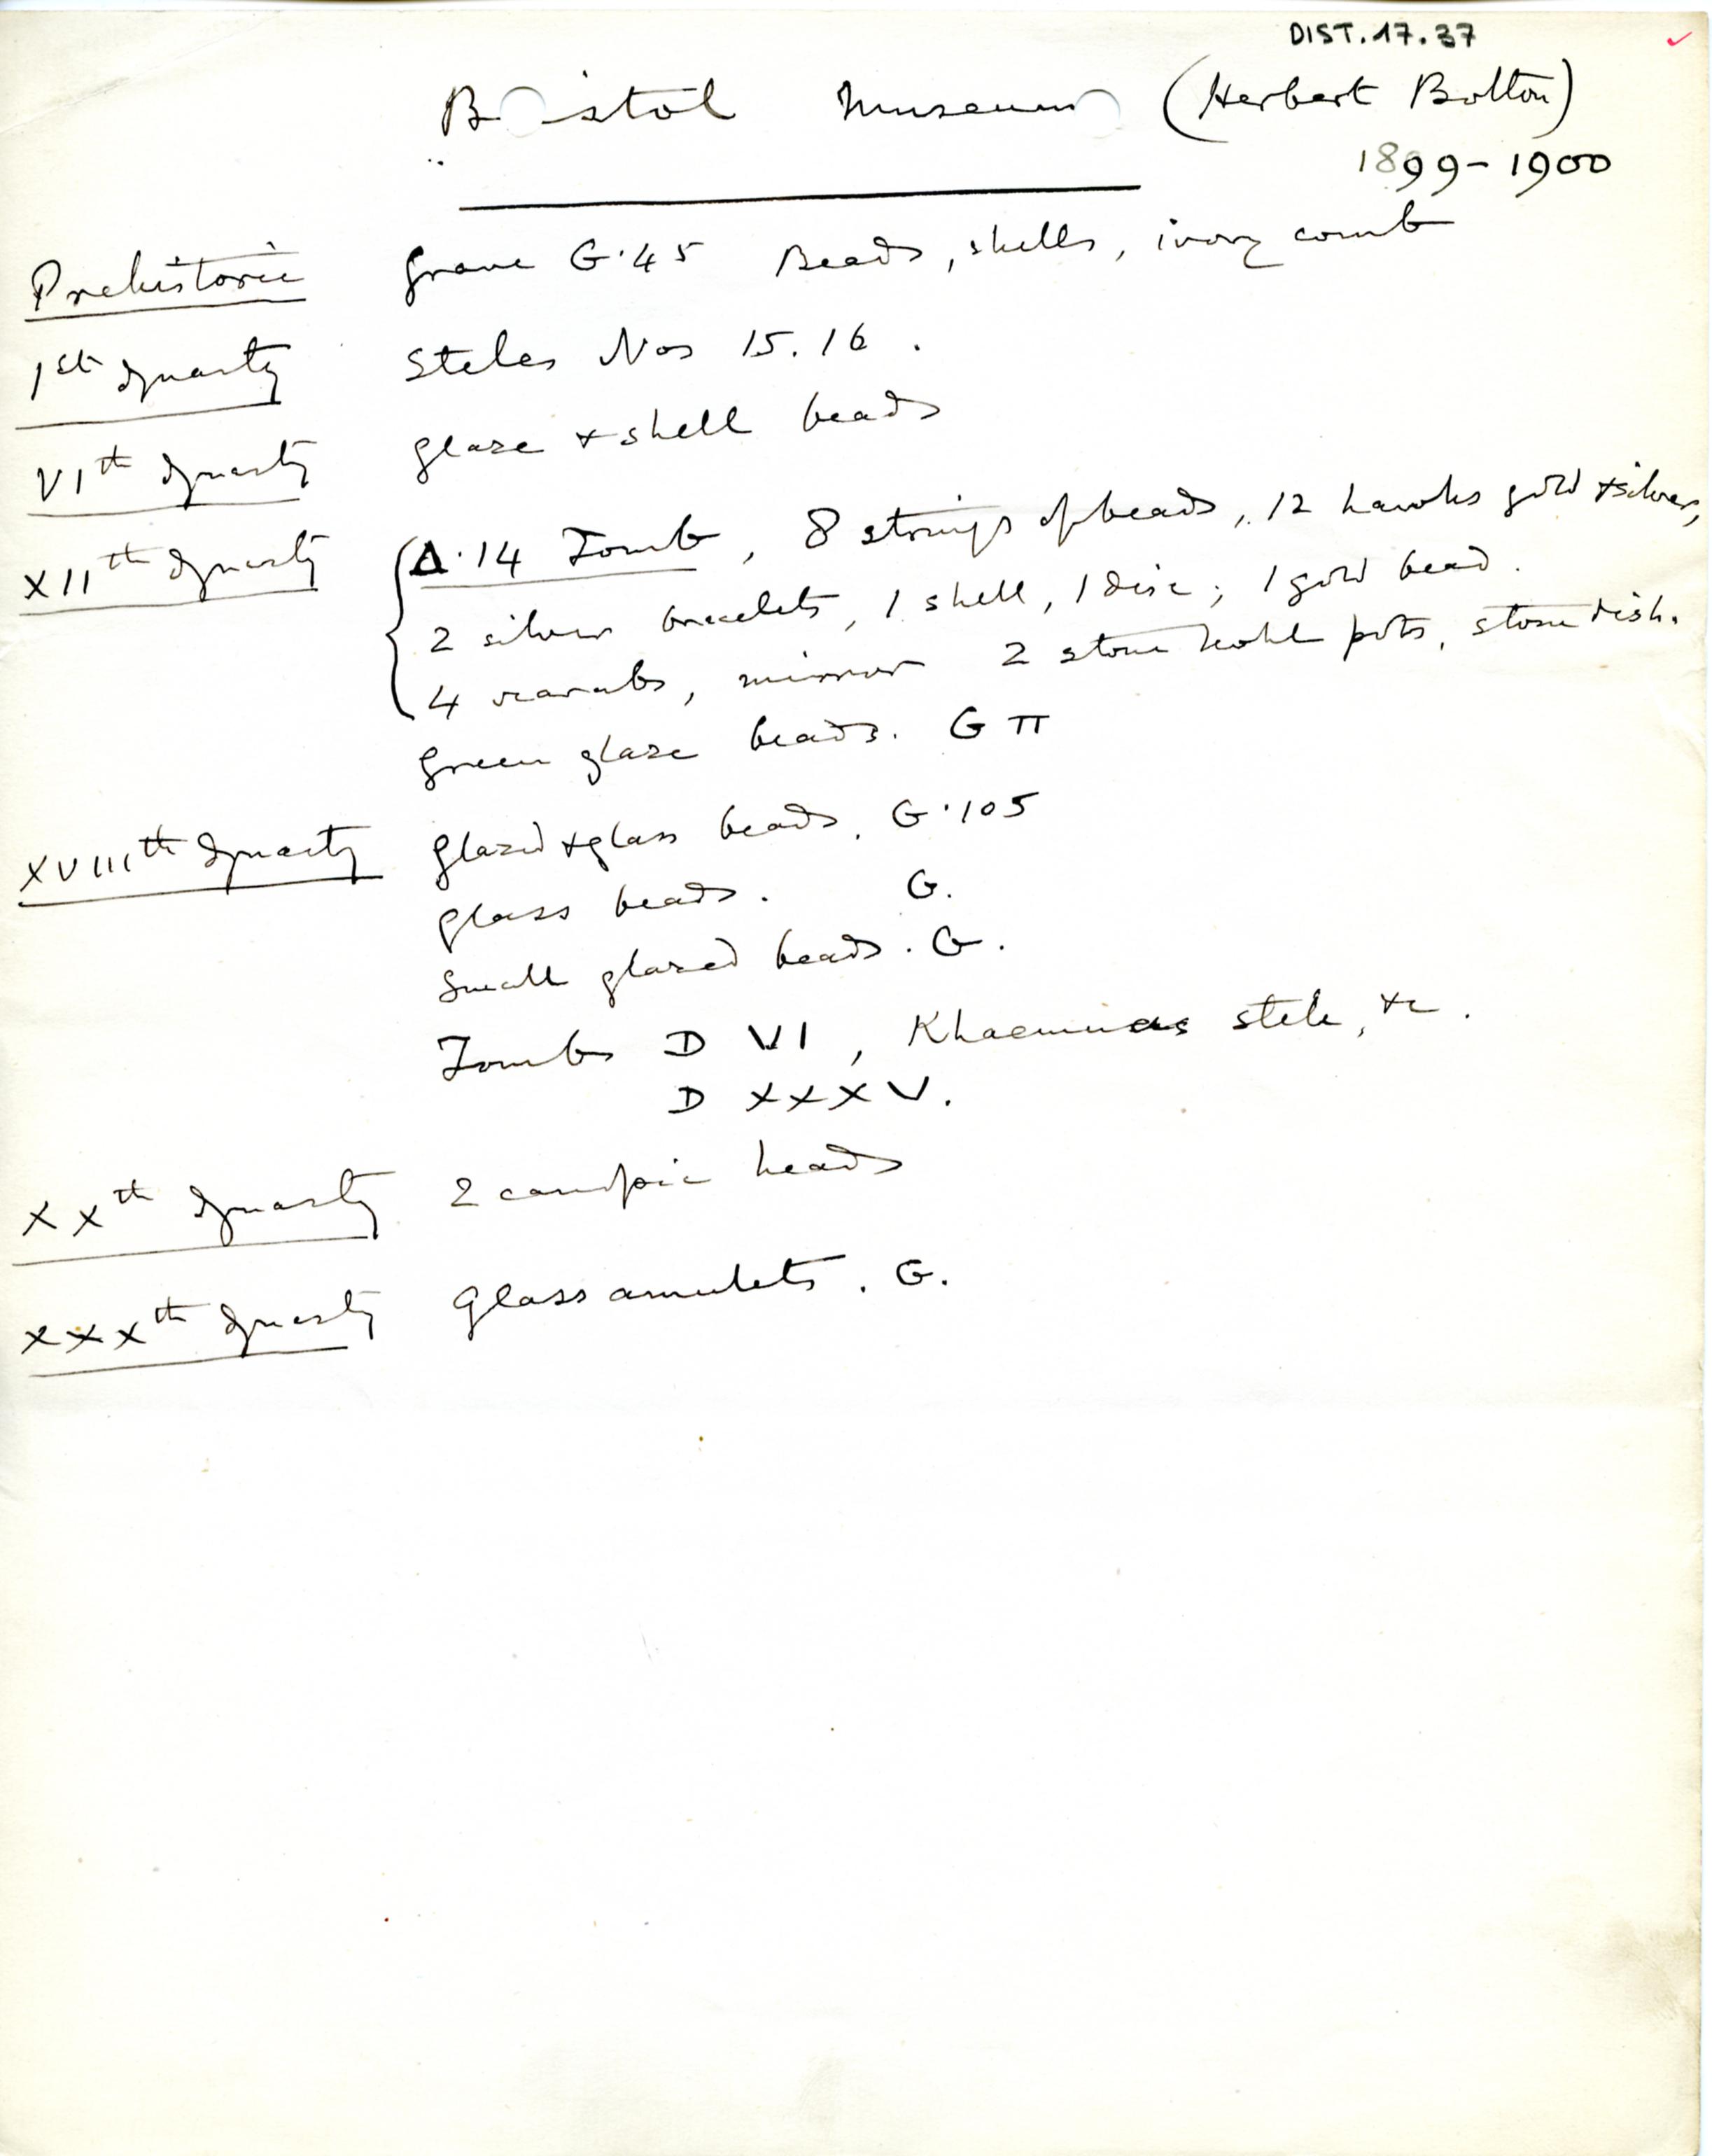 DIST.17.37
B istol Museum (Herbert Bolton)
1899-1900
Prehistoric Grave G.45 Beads, shells, ivory comb
1st Dynasty Steles Nos 15.16.
VIth Dynasty Glaze + shell beads
XIIth Dynasty Δ.14 Tomb, 8 strings of beads, 12 hawks gold + silver,
2 silver bracelets, 1 shell, 1 disc; 1 gold bead.
4 scarabs, mirror 2 stone kohl pots, stone dish.
Green glaze beads. G π
XVIIIth Dynasty Glazed + glass beads. G.105
Glass beads. G.
Small glazed beads. G.
Tombs D VI, Khaemuas stele, &c.
D XXXV.
XXth Dynasty 2 canopic heads
XXXth Dynasty Glass amulets. G.